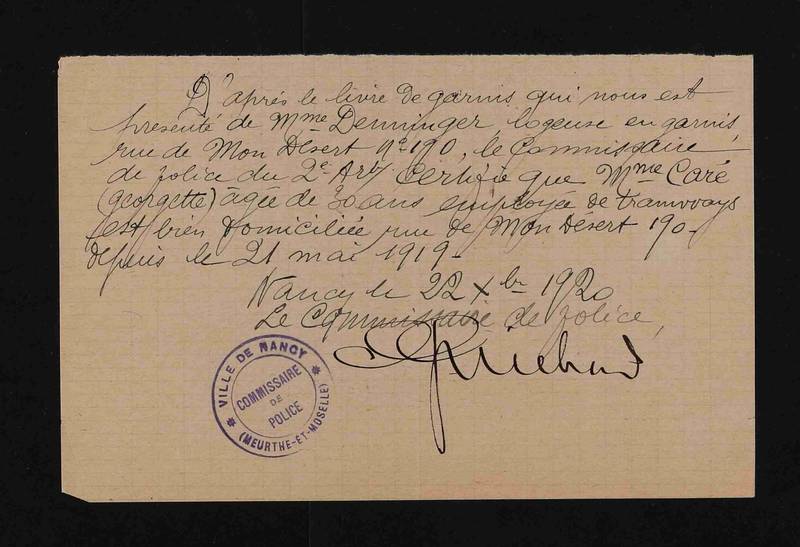 D'après le livre de garnis qui nous est
présenté de Mme Denninger, logeuse en garnis,
rue de Mon Désert N° 190, le Commissaire
de police du 2e Arrt Certifie que Mme Caré
(georgette) âgée de 30 ans employée de tramways
est bien domiciliée rue de Mon Désert 190-
depuis le 21 mai 1919-
Nancy le 22 Xbr 1920
Le Commissaire de police,
VILLE DE NANCY
COMMISSAIRE
DE
POLICE
(MEURTHE-ET-MOSELLE)